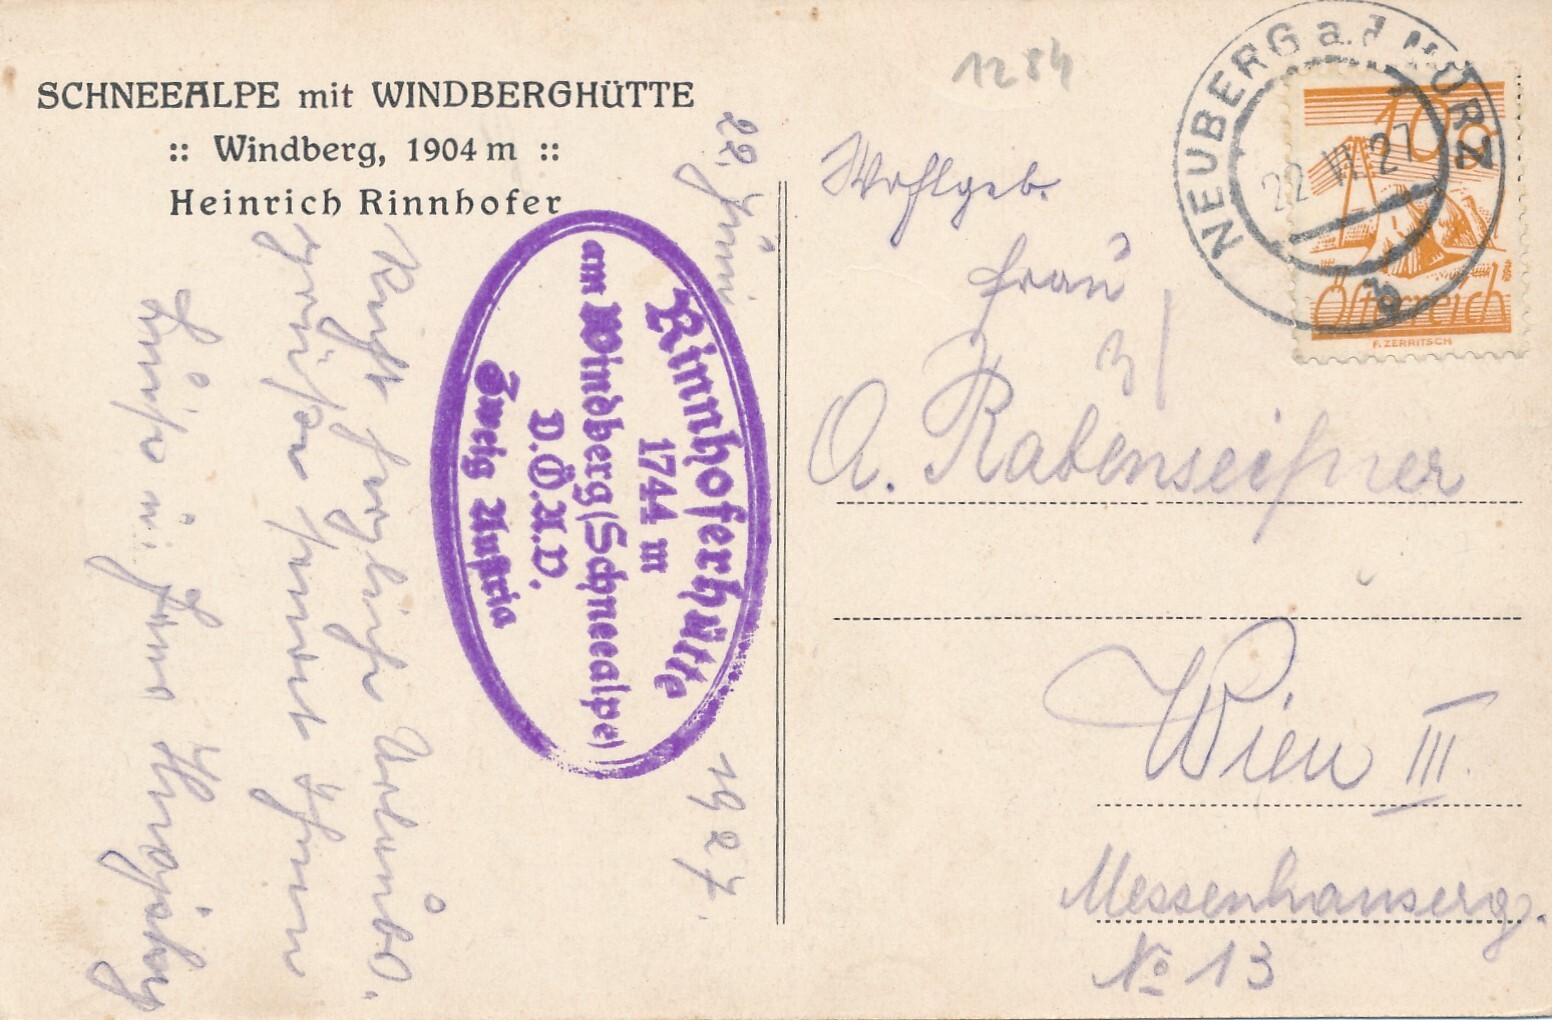 SCHNEEALPE mit WINDBERGHÜTTE
:: Windberg, 1904 m ::
Heinrich Rinnhofer
22. Juni 1927.
Recht herzliche Urlaubs.
grüße sendet Ihnen
Luise u. Hans
Rinnhoferhütte
1744 m
am Windberg (Schneealpe)
D.Ö.A.V.
Zweig Austria
1284
NEUBERG a.d. MÜRZ
22 VI 27
b
10g
Österreich
F. ZERRITSCH
Wohlgeb.
Frau
A. Rabenseifner
Wien III.
Messenhauserg.
No 13